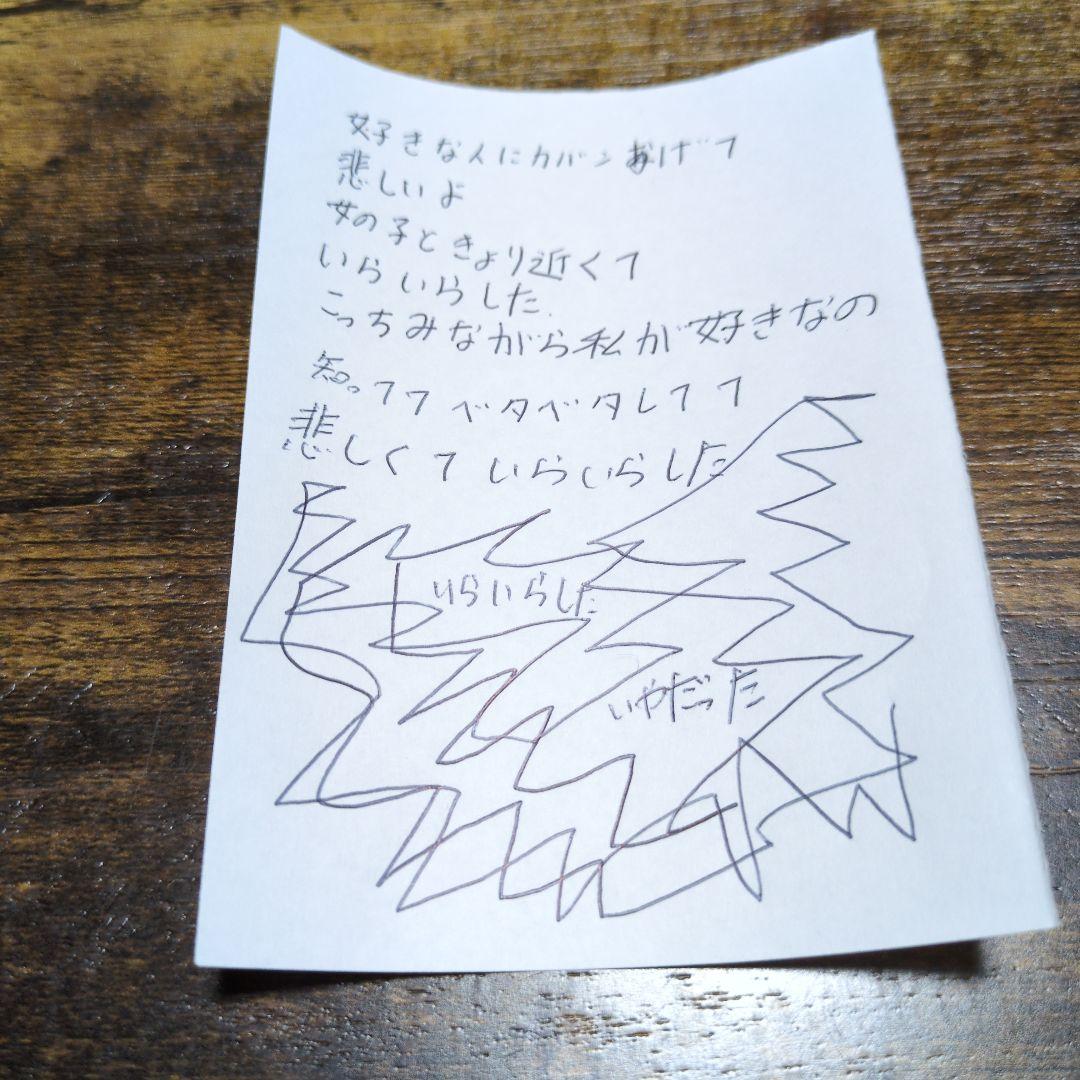 好きな人にカバンあげて
悲しいよ
女の子ときょり近くて
いらいらした.
こっちみながら私が好きなの
知ってて ベタベタしてて
悲しくていらいらした
いらいらした
いやだった